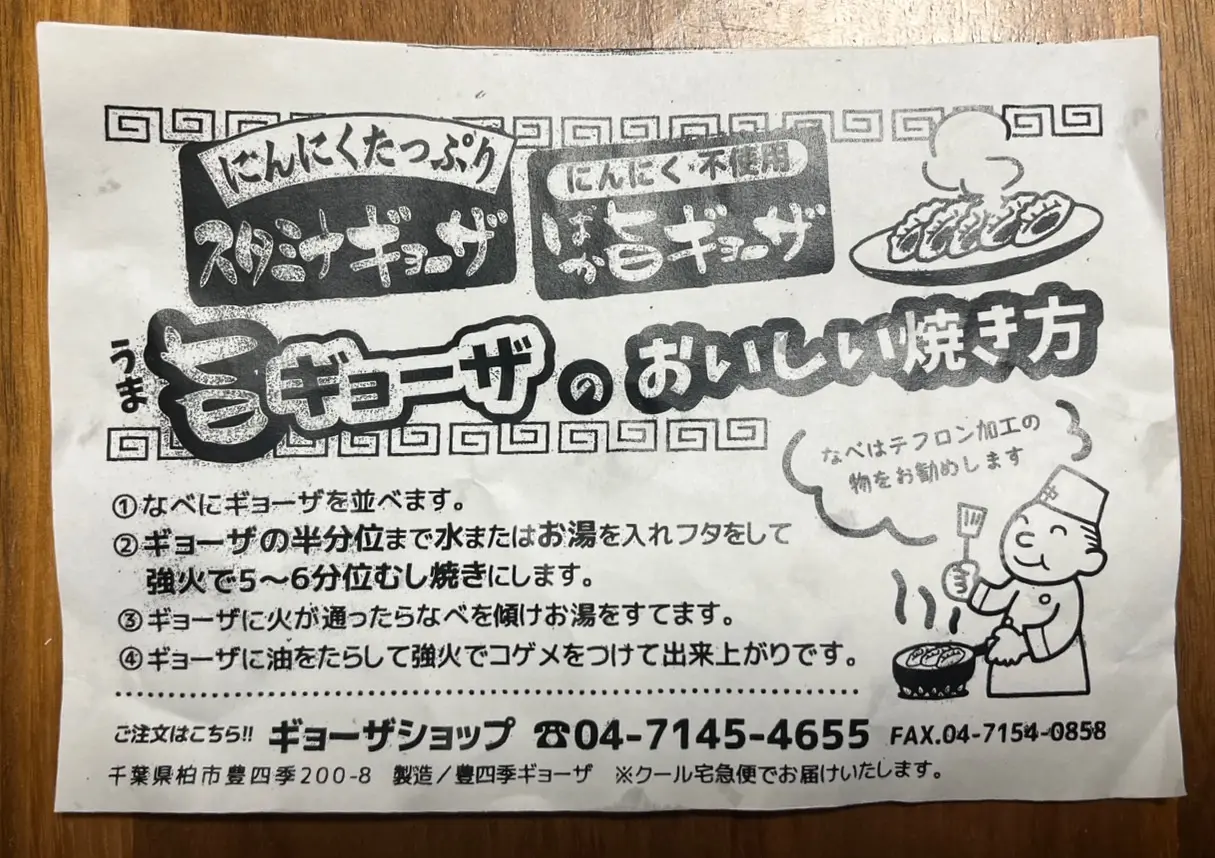 にんにくたっぷり
スタミナギョーザ
にんにく・不使用
ばか旨ギョーザ
うま
旨ギョーザのおいしい焼き方
なべはテフロン加工の
物をお勧めします
①なべにギョーザを並べます。
②ギョーザの半分位まで水またはお湯を入れフタをして
強火で5〜6分位むし焼きにします。
③ギョーザに火が通ったらなべを傾けお湯をすてます。
④ギョーザに油をたらして強火でコゲメをつけて出来上がりです。
ご注文はこちら!! ギョーザショップ ☎04-7145-4655 FAX.04-7154-0858
千葉県柏市豊四季200-8 製造/豊四季ギョーザ ※クール宅急便でお届けいたします。